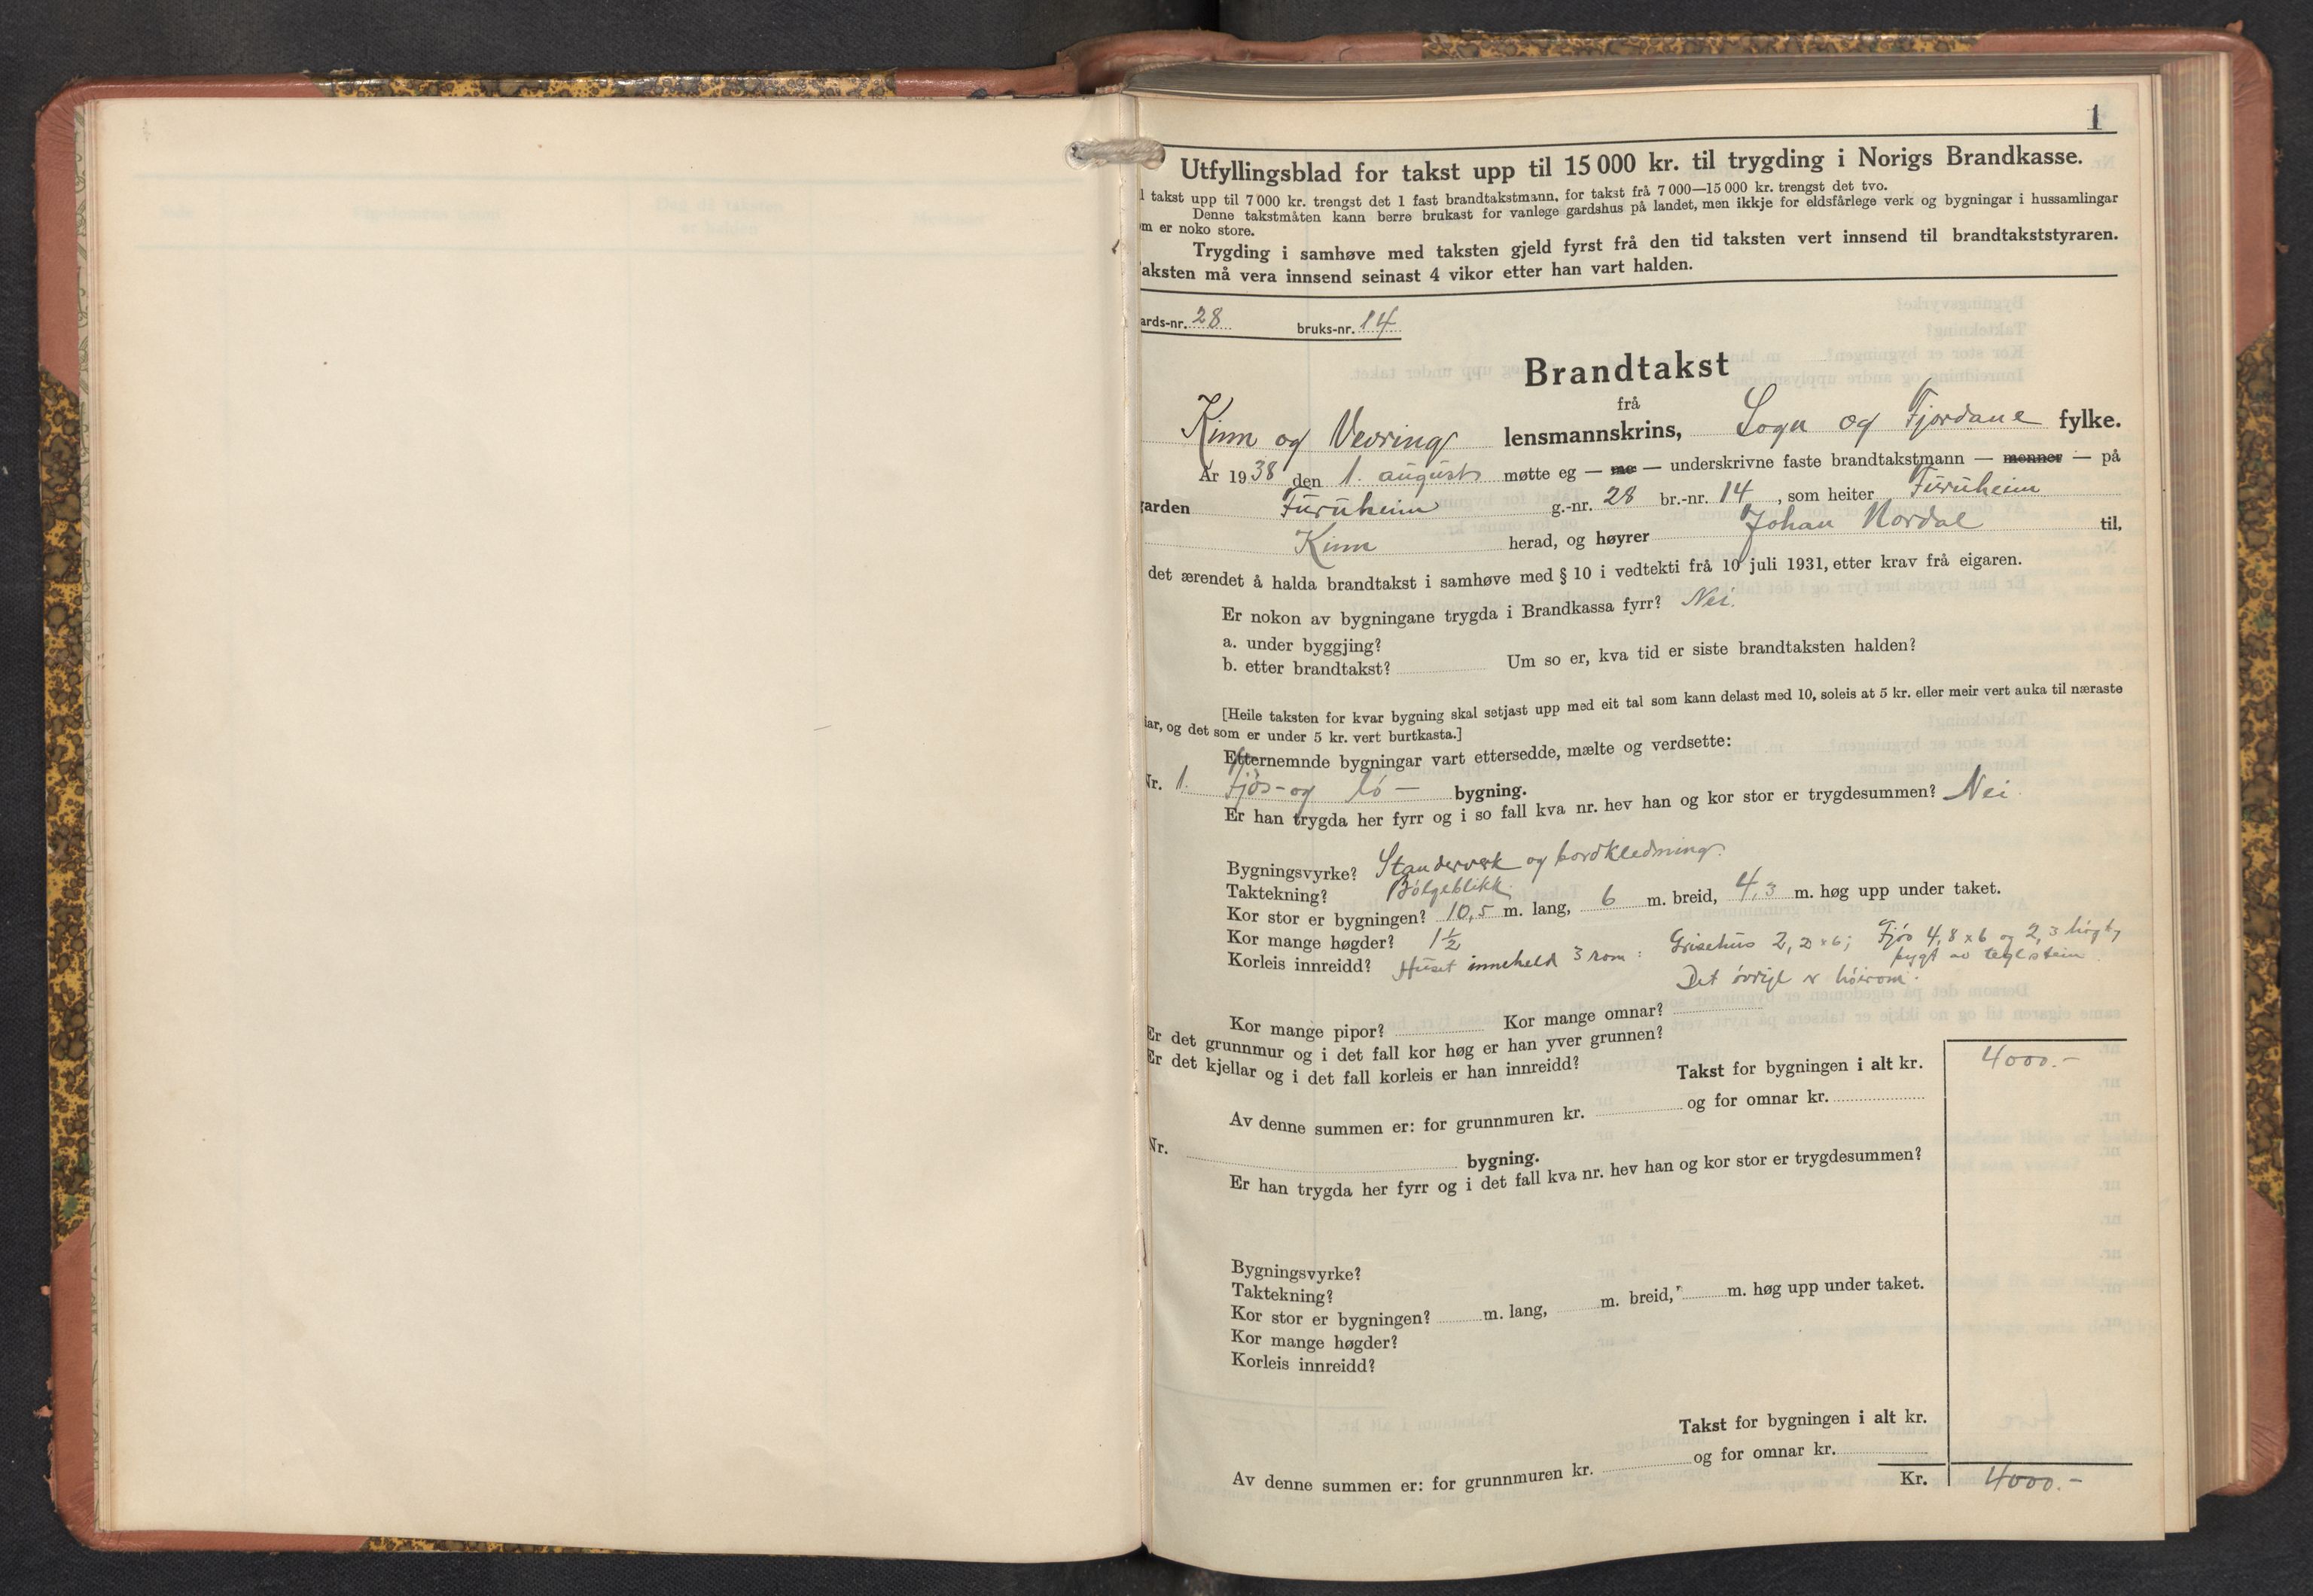 1
Utfyllingsblad for takst upp til 15 000 kr. til trygding i Norigs Brandkasse.
l takst upp til 7 000 kr. trengst det 1 fast brandtakstmann, for takst frå 7 000—15 000 kr. trengst det tvo.
Denne takstmåten kann berre brukast for vanlege gardshus på landet, men ikkje for eldsfårlege verk og bygningar i hussamlingar
m er noko store.
Trygding i samhøve med taksten gjeld fyrst frå den tid taksten vert innsend til brandtakststyraren.
aksten må vera innsend seinast 4 vikor etter han vart halden.
ards-nr. 28 bruks-nr. 14
Brandtakst
frå
Kinn og Vevring lensmannskrins, Sogn og Fjordane fylke.
År 1938 den 1. august møtte eg — me — underskrivne faste brandtakstmann — menner — på
garden Furuheim g.-nr. 28 br.-nr. 14, som heiter Furuheim
Kinn herad, og høyrer Johan Nordal til,
det ærendet å halda brandtakst i samhøve med § 10 i vedtekti frå 10 juli 1931, etter krav frå eigaren.
Er nokon av bygningane trygda i Brandkassa fyrr? Nei.
a. under byggjing?
b. etter brandtakst? Um so er, kva tid er siste brandtaksten halden?
[Heile taksten for kvar bygning skal setjast upp med eit tal som kann delast med 10, soleis at 5 kr. eller meir vert auka til næraste
iar, og det som er under 5 kr. vert burtkasta.]
Etternemnde bygningar vart ettersedde, mælte og verdsette:
Nr. 1. Fjøs- og lø- bygning.
Er han trygda her fyrr og i so fall kva nr. hev han og kor stor er trygdesummen? Nei.
Bygningsvyrke? Standerverk og bordkledning.
Taktekning? Bølgeblikk.
Kor stor er bygningen? 10,5 m. lang, 6 m. breid, 4,3 m. høg upp under taket.
Kor mange høgder? 1½
Korleis innreidd? Huset inneheld 3 rom: Grisehus 2,2×6; Fjøs 4,8×6 og 2,3 høg og
bygt av teglstein.
Det øvrige er høirom.
Kor mange pipor? Kor mange omnar?
Er det grunnmur og i det fall kor høg er han yver grunnen?
Er det kjellar og i det fall korleis er han innreidd?
Takst for bygningen i alt kr. 4000.-
Av denne summen er: for grunnmuren kr. og for omnar kr.
Nr. bygning.
Er han trygda her fyrr og i det fall kva nr. hev han og kor stor er trygdesummen?
Bygningsvyrke?
Taktekning?
Kor stor er bygningen? m. lang, m. breid, m. høg upp under taket.
Kor mange høgder?
Korleis innreidd?
Takst for bygningen i alt kr.
Av denne summen er: for grunnmuren kr. og for omnar kr.
Kr. 4000.-